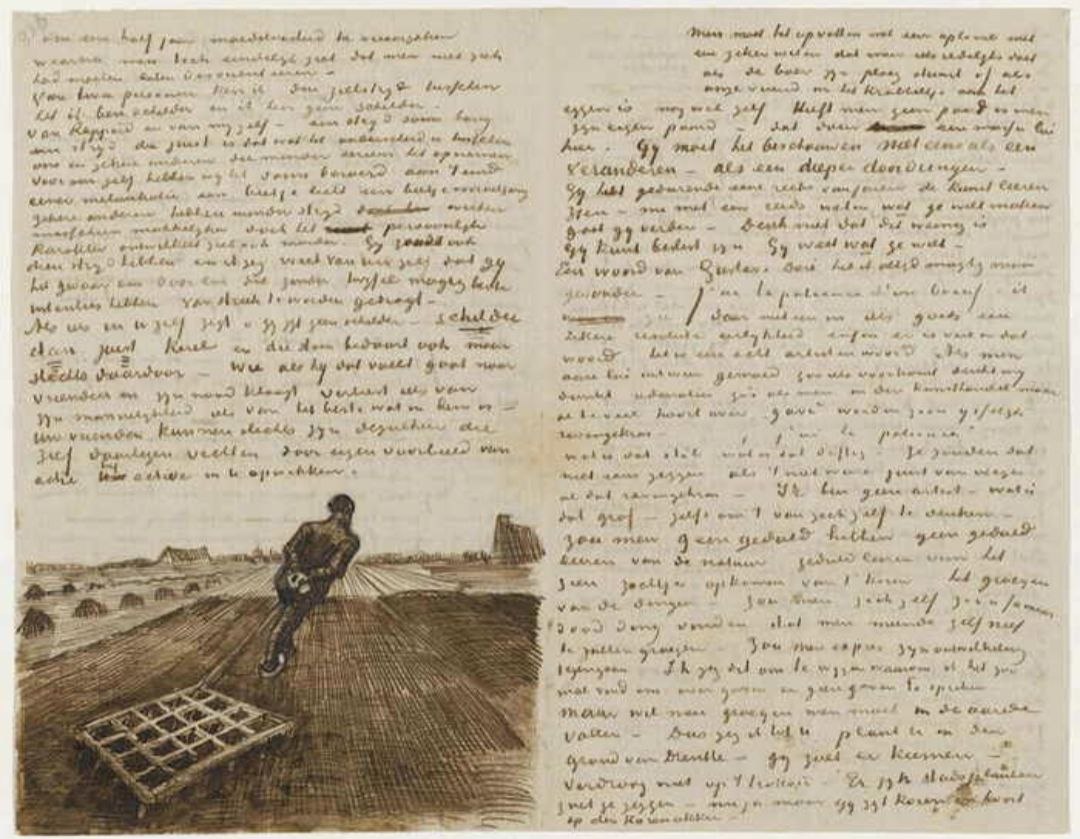 om een half jaar moedeloosheid te veroorzaken
waarna men toch eindelijk ziet dat men niet zich
had moeten laten
Van twee personen ken ik den zielestrijd tusschen
het ik ben schilder en ik ben geen schilder.
Van Rappard en van my zelf — een stryd soms bang
een stryd die juist is dat wat het onderscheid is tusschen
ons en zekere anderen die minder serieus het opnemen.
Voor ons zelf hebben wy 't soms beroerd aan 't eind
eener melankolie een beetje licht een beetje vooruitgang
zekere anderen hebben minder stryd werken
misschien makkelyker doch het persoonlyk
karakter ontwikkelt zich ook minder. Gy zoudt ook
dien stryd hebben en ik zeg weet van uw zelf dat gy
het gevaar van door lui die zonder twyfel magnifique
intenties hebben van streek te worden gebragt.—
Als iets in U zelf zegt „gy zyt geen schilder" — schilder
dan juist kerel en die stem bedaart ook maar
slechts daardoor — Wie als hy dat voelt gaat naar
vrienden en zyn nood klaagt verliest iets van
zyn mannelykheid iets van het beste wat in hem is —
Uw vrienden kunnen slechts zyn dezulken die
zelf daartegen vechten door eigen voorbeeld van
actie het active in U opwekken.
Men moet het opvatten met een aplomb met
een zeker weten dat men iets redelyks doet
als de boer zyn ploeg stuurt of als
onze vriend in het krabbeltje die aan het
eggen is nog wel zelf. Heeft men geen paard is men
zyn eigen paard — dat doen een massa lui
hier. Gy moet het beschouwen niet eens als een
veranderen — als een dieper doordringen —
Gy hebt gedurende eene reeks van jaren de kunst leeren
zien — nu met reeds weten wat ge wilt maken
gaat gy verder. Denk niet dat dit weinig is
Gy kunt beslist zyn Gy weet wat ge wilt —
Een woord van Gustave Doré heb ik altyd magnifiek mooi
gevonden — J'ai la patience d'un boeuf — ik
zie daar meteen in iets goeds een
zekere resolute eerlykheid enfin er is veel in dat
woord het is een echt artisten woord. Als men
aan lui uit wier gemoed zoo iets voortkomt denkt my
dunkt redenaties zoo als men in den kunsthandel maar
al te veel hoort over „gave" worden zoo'n yselyk
ravengekras — „j'ai la patience"
wat is dat stil, wat is dat deftig. Ze zouden dat
niet eens zeggen als 't niet ware juist van wege
al dat ravengekras — Ik ben geen artist — wat is
dat grof — zelfs om 't van zich zelf te denken —
zou men geen geduld hebben geen geduld
leeren van de natuur geduld leeren van het
zien zachtjes opkomen van 't koren het groeyen
van de dingen — zou men zich zelf zoo'n
dood ding vinden dat men meende zelf niet
te zullen groeyen. Zou men expres zyn ontwikkeling
tegengaan. Ik zeg dit om te wyzen waarom ik het zoo
mal vind om over gaven en geen gaven te spreken
Maar wil men groeyen men moet in de aarde
vallen — Dus zeg ik tot U plant U in den
grond van Drenthe — gy zult er kiemen —
verdroog niet op 't trottoir. Er zyn stadsplanten
zult ge zeggen — nu ja maar gy zyt koren en hoort
op den korenakker —